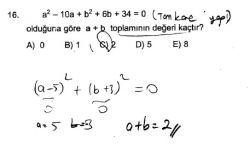 16. a² – 10a + b² + 6b + 34 = 0 (Tam kare yap!)
olduğuna göre a + b toplamının değeri kaçtır?
A) 0 B) 1 C) 2 D) 5 E) 8
(a-5)² + (b+3)² = 0
0 0
a=5 b=3 a+b=2//